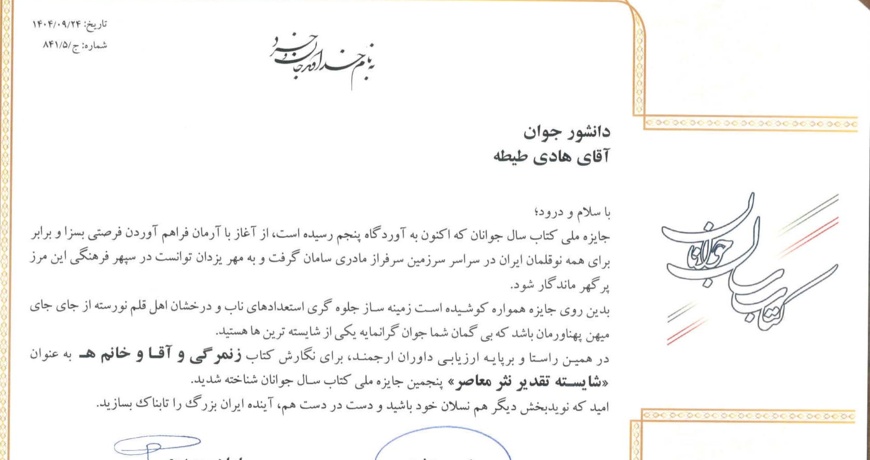 تاریخ: ۱۴۰۴/۰۹/۲۴
شماره: ج/۸۴۱/۵
به نام خداوند جان و خرد
دانشور جوان
آقای هادی طیطه
با سلام و درود؛
جایزه ملی کتاب سال جوانان که اکنون به آوردگاه پنجم رسیده است، از آغاز با آرمان فراهم آوردن فرصتی بسزا و برابر
برای همه نوقلمان ایران در سراسر سرزمین سرفراز مادری سامان گرفت و به مهر یزدان توانست در سپهر فرهنگی این مرز
پرگهر ماندگار شود.
بدین روی جایزه همواره کوشیده است زمینه ساز جلوه گری استعدادهای ناب و درخشان اهل قلم نورسته از جای جای
میهن پهناورمان باشد که بی گمان شما جوان گرانمایه یکی از شایسته ترین ها هستید.
در همین راستا و برپایه ارزیابی داوران ارجمند، برای نگارش کتاب زنمرگی و آقا و خانم هـ به عنوان
«شایسته تقدیر نثر معاصر» پنجمین جایزه ملی کتاب سال جوانان شناخته شدید.
امید که نویدبخش دیگر هم نسلان خود باشید و دست در دست هم، آینده ایران بزرگ را تابناک بسازید.
کتاب سال جوانان